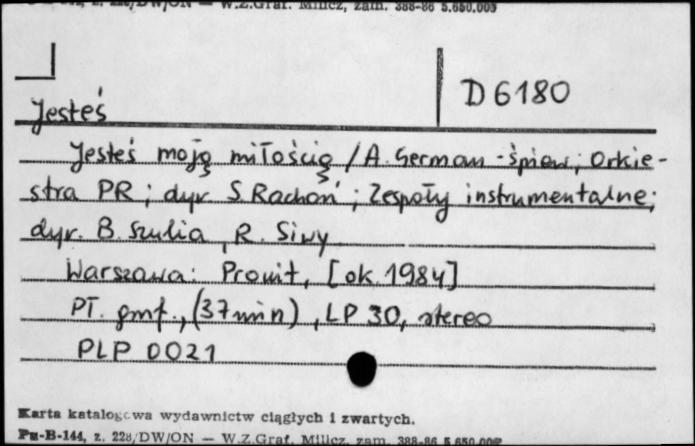 Pu-B-144, z. 228/DW/ON — W.Z.Graf. Milicz, zam. 388-86 5.650.000
D 6180
Jesteś
Jesteś moją miłością / A. German - śpiew; Orkie-
stra PR; dyr. S. Rachoń; Zespoły instrumentalne;
dyr. B. Szulia, R. Siwy
Warszawa: Pronit, [ok. 1984]
PŁ. gmf., (37 min), LP 30, stereo
PLP 0021
Karta katalogowa wydawnictw ciągłych i zwartych.
Pu-B-144, z. 228/DW/ON — W.Z.Graf. Milicz, zam. 388-86 5.650.000